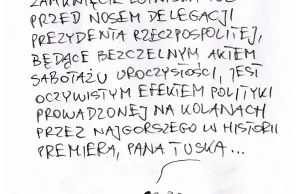 ZAMKNIĘCIE LOTNISKA TUŻ
PRZED NOSEM DELEGACJI
PREZYDENTA RZECZPOSPOLITEJ,
BĘDĄCE BEZCZELNYM AKTEM
SABOTAŻU UROCZYSTOŚCI, JEST
OCZYWISTYM EFEKTEM POLITYKI
PROWADZONEJ NA KOLANACH
PRZEZ NAJGORSZEGO W HISTORII
PREMIERA, PANA TUSKA...